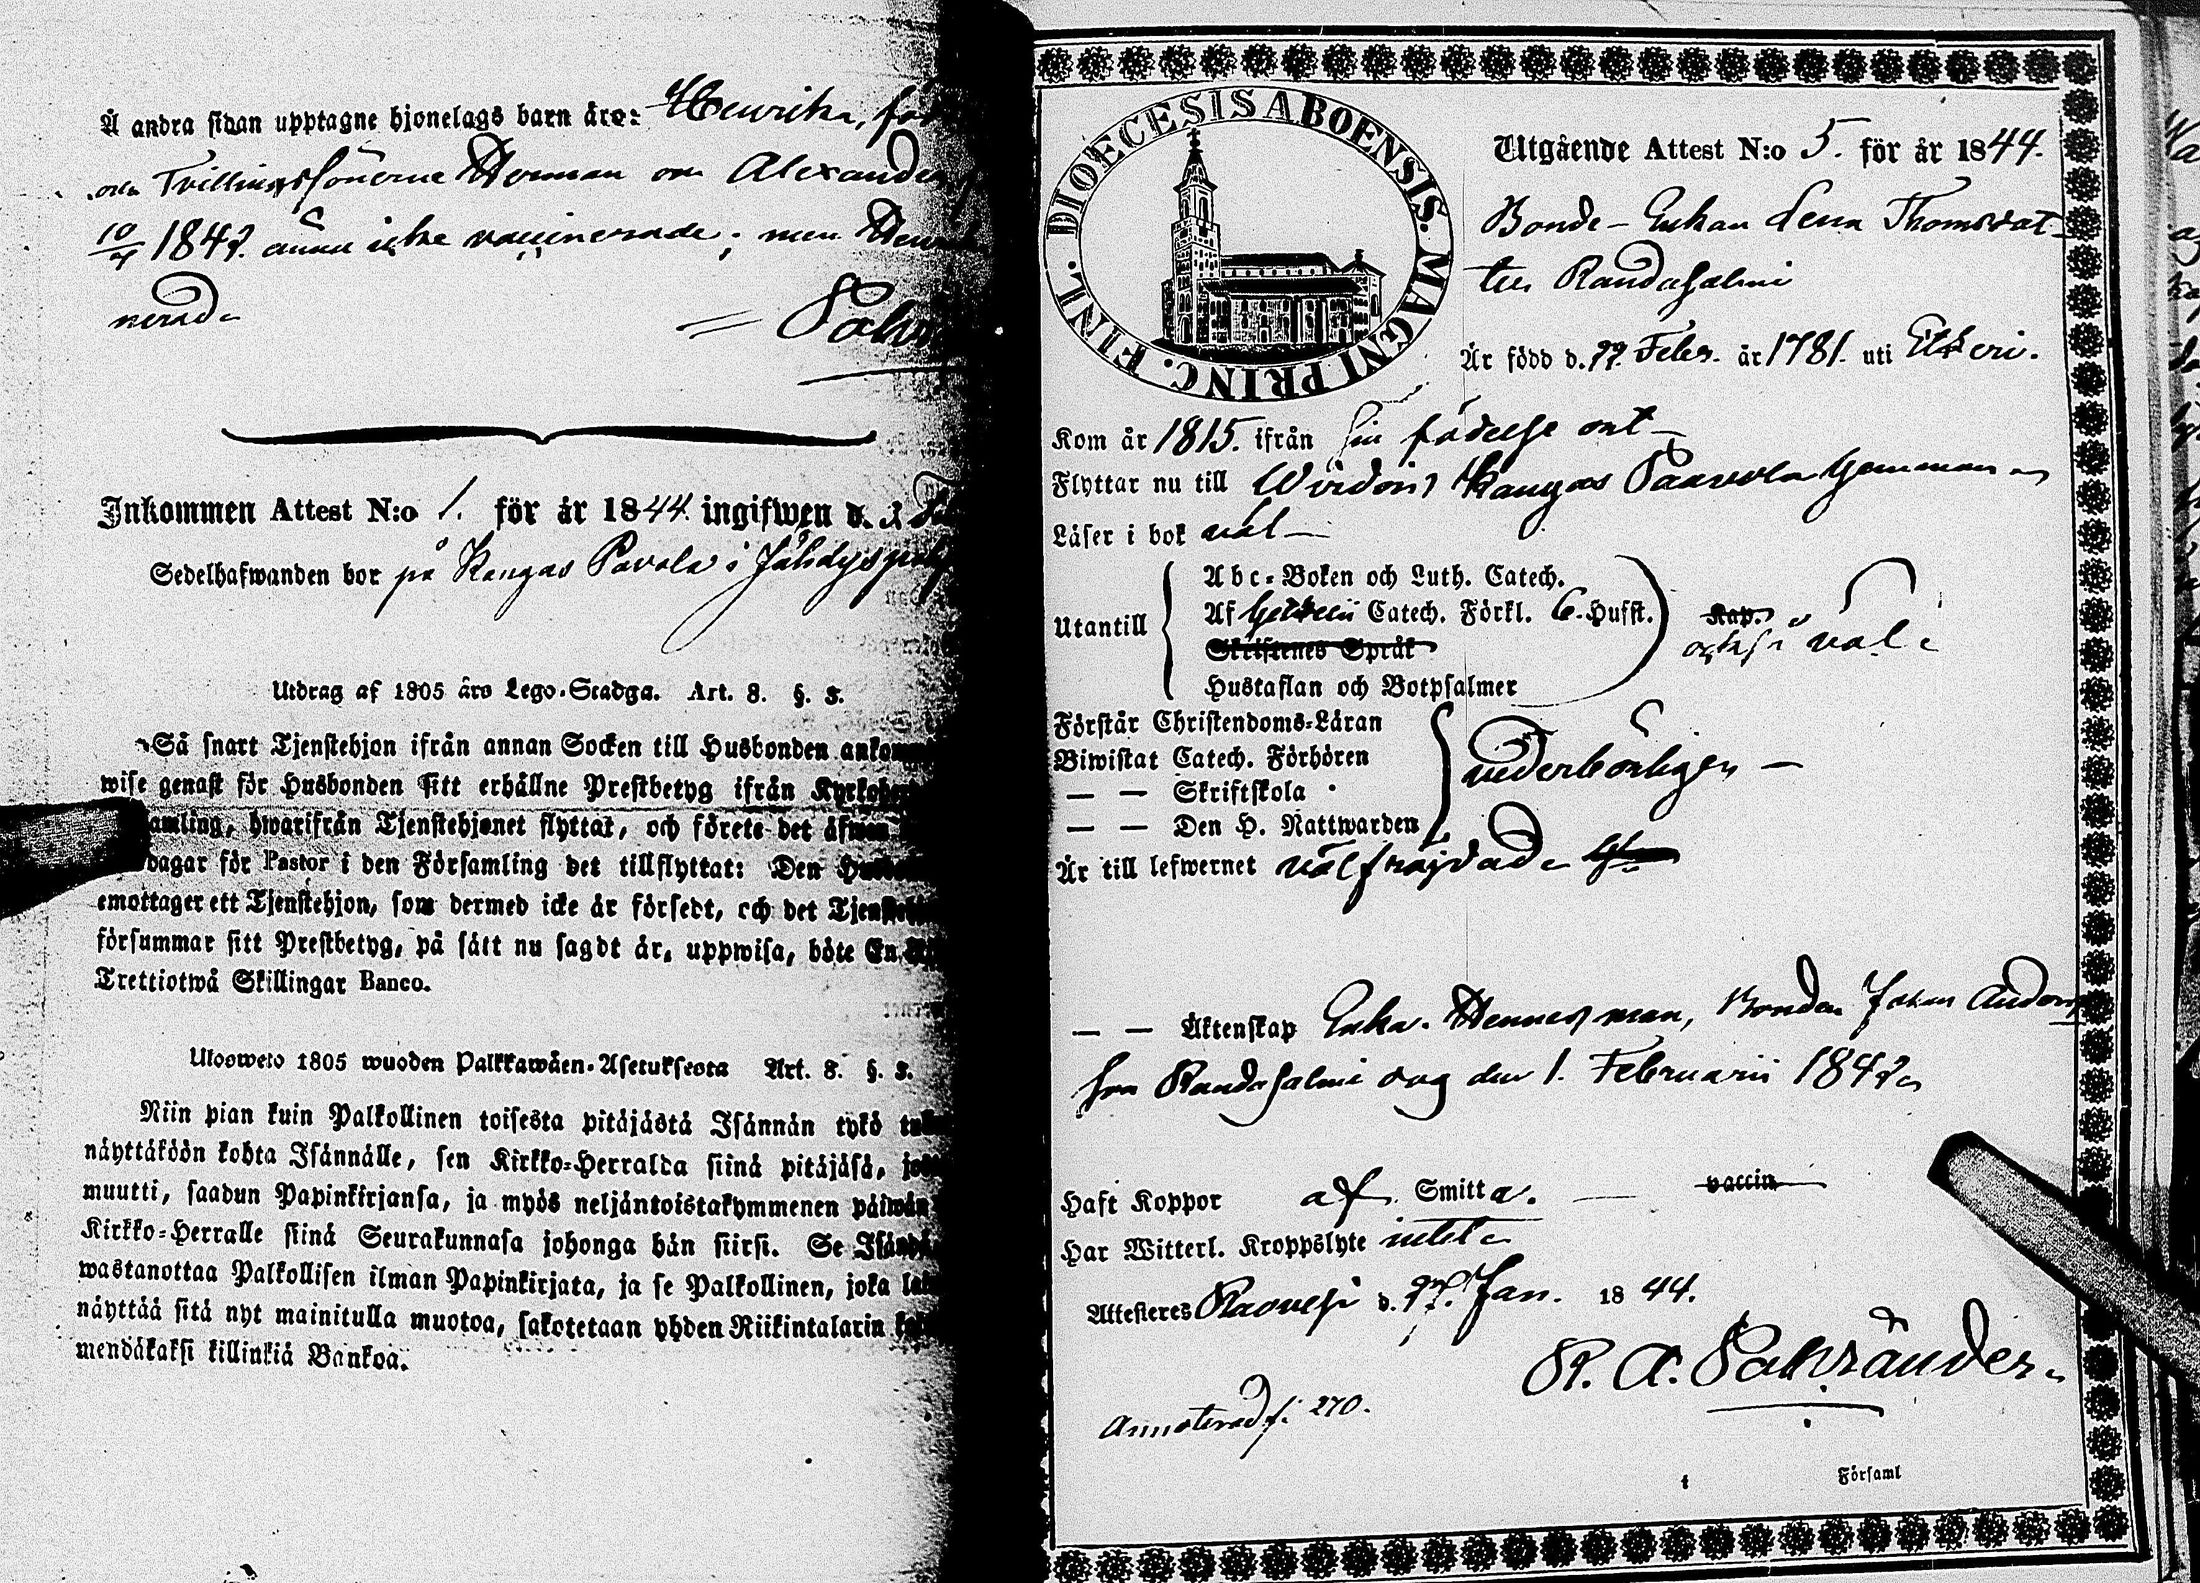 Å andra sidan upptagne hjonelags barn äro: Henrika, föd
och Tvillingssönerne Herman och Alexander
10/4 1842. ännu icke vaccinerade; men Hen
nerade
Pahr
Inkommen Attest N:o 1. för år 1844. ingifwen d.
Sedelhafwanden bor på Kangas Pavola i Jähdyspohj
Utdrag af 1805 års Lego-Stadga. Art. 8. §. 5.
Så snart Tjenstehjon ifrån annan Socken till Husbonden ankomm
wise genast för Husbonden sitt erhållne Prestbetyg ifrån Kyrkoher
amling, hwarifrån Tjenstehjonet flyttat, och förete det äfwen
dagar för Pastor i den Församling det tillflyttat: Den Husbo
emottager ett Tjenstehjon, som dermed icke är försedt, och det Tjenstehj
försummar sitt Prestbetyg, på sätt nu sagdt är, uppwisa, böte En
Trettiotwå Skillingar Banco.
Ulosweto 1805 wuoden Palkkawäen-Asetuksesta Art. 8. §. 5.
Niin pian kuin Palkollinen toisesta pitäjästä Isännän tykö tul
näyttäköön kohta Isännälle, sen Kirkko-Herralda siinä pitäjäsä, jos
muutti, saadun Papinkirjansa, ja myös neljäntoistakymmenen päiwän
Kirkko-Herralle siinä Seurakunnasa johonga hän siirsi. Se Isänd
wastanottaa Palkollisen ilman Papinkirjata, ja se Palkollinen, joka la
näyttää sitä nyt mainitulla muotoa, sakotetaan yhden Riikintalarin
mendäkaksi killinkiä Bankoa.
FINL. DIOECESIS ABOENSIS. MAGNI PRINC.
Utgående Attest N:o 5. för år 1844.
Bonde-Enkan Lena Thomsdot-
ter Randasalmi
Är född d. 22. Febr. år 1781. uti Etseri.
Kom år 1815. ifrån sin födelse ort
Flyttar nu till Wirdois Kangas Paavola hemman
Läser i bok väl
Utantill
Abc-Boken och Luth. Catech.
Af Catech. Förkl. 6. Husst.
Skriftenes Språk
Hustaflan och Botpsalmer
Kap.
också väl
Förstår Christendoms-Läran
Biwistat Catech. Förhören
— — Skriftskola
— — Den H. Nattwarden
vederbörligen
Är till lefwernet välfrägdade
— — Äktenskap Enka. Hennes man, Bonden Johan Anders
son Randasalmi dog den 1. Februarii 1842
Haft Koppor af Smitta. vaccin
Har Witterl. Kroppslyte intet
Attesteres Kaovesi d. 27. Jan. 1844.
Annoterad f. 270.
t Församl